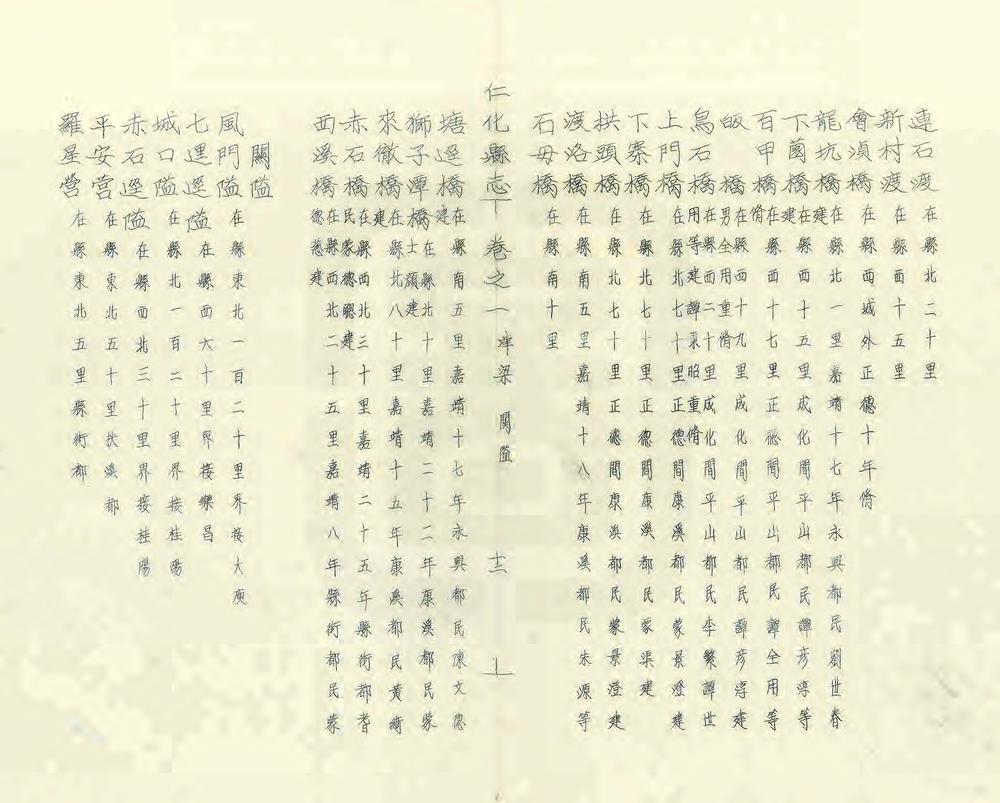 連石渡在縣北二十里
新村渡在縣西十五里
會湞橋在縣西城外正德十年脩
龍坑橋在縣北一里嘉靖十七年永興都民劉世春建
下菌橋在縣西十五里成化間平山都民譚彥淳等建
百甲橋在縣西十七里正德間平山都民譚全用等脩
皈橋在縣西十九里成化間平山都民譚彥淳建男全用重脩
烏石橋在縣西二十里成化間平山都民李繁譚世用等建譚秉昭重脩
上門橋在縣北七十里正德間康溪都民蒙景澄建
下寨橋在縣北七十里正德間康溪都民蒙渠建
拱頭橋在縣北七十里正德間康溪都民蒙景澄建
渡洛橋在縣南五里嘉靖十八年康溪都民朱源等
石毋橋在縣南十里
仁化縣志 卷之一 津梁 關隘 十三
塘逕橋在縣南五里嘉靖十七年永興都民陳文德建
獅子潭橋在縣北十里嘉靖二十二年康溪都民蒙士頴建
來徹橋在縣北八十里嘉靖十五年康溪都民黃綺建
赤石橋在縣西北三十里嘉靖二十五年縣衙都耆民蒙德聰建
西溪橋在縣西北二十五里嘉靖八年縣衙都民蒙德慈建
關隘
風門隘在縣東北一百二十里界接大庾
七里逕隘在縣西六十里界接樂昌
城口隘在縣北一百二十里界接桂陽
赤石逕隘在縣西北三十里界接桂陽
平安營在縣東北五十里扶溪都
羅星營在縣東北五里縣衙都